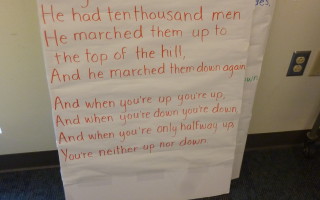 He had ten thousand men
He marched them up to
the top of the hill,
And he marched them down again
And when you're up you're up,
And when you're down you're down,
And when you're only halfway up
You're neither up nor down.
yes,